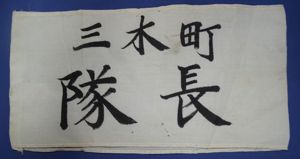 三木町
隊長